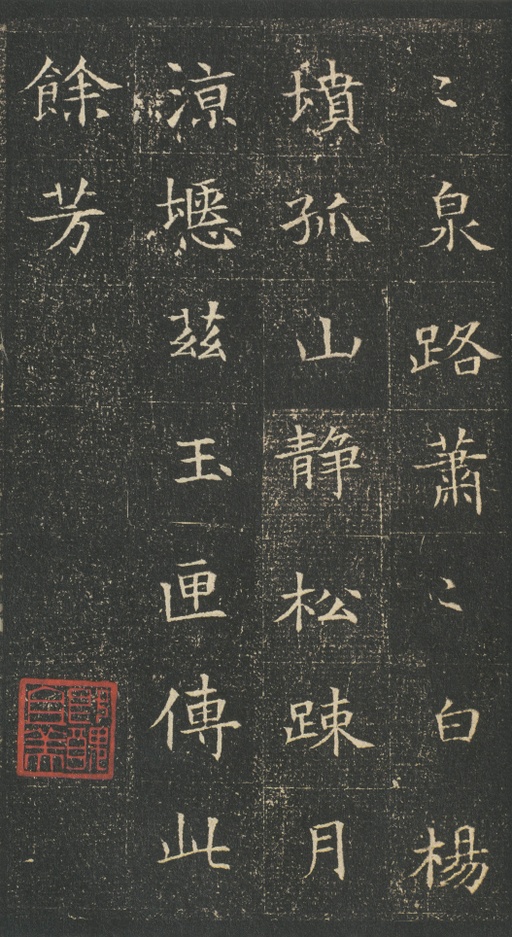 〻泉路蕭〻白楊
墳孤山静松踈月
涼壋茲玉匣傳此
餘芳